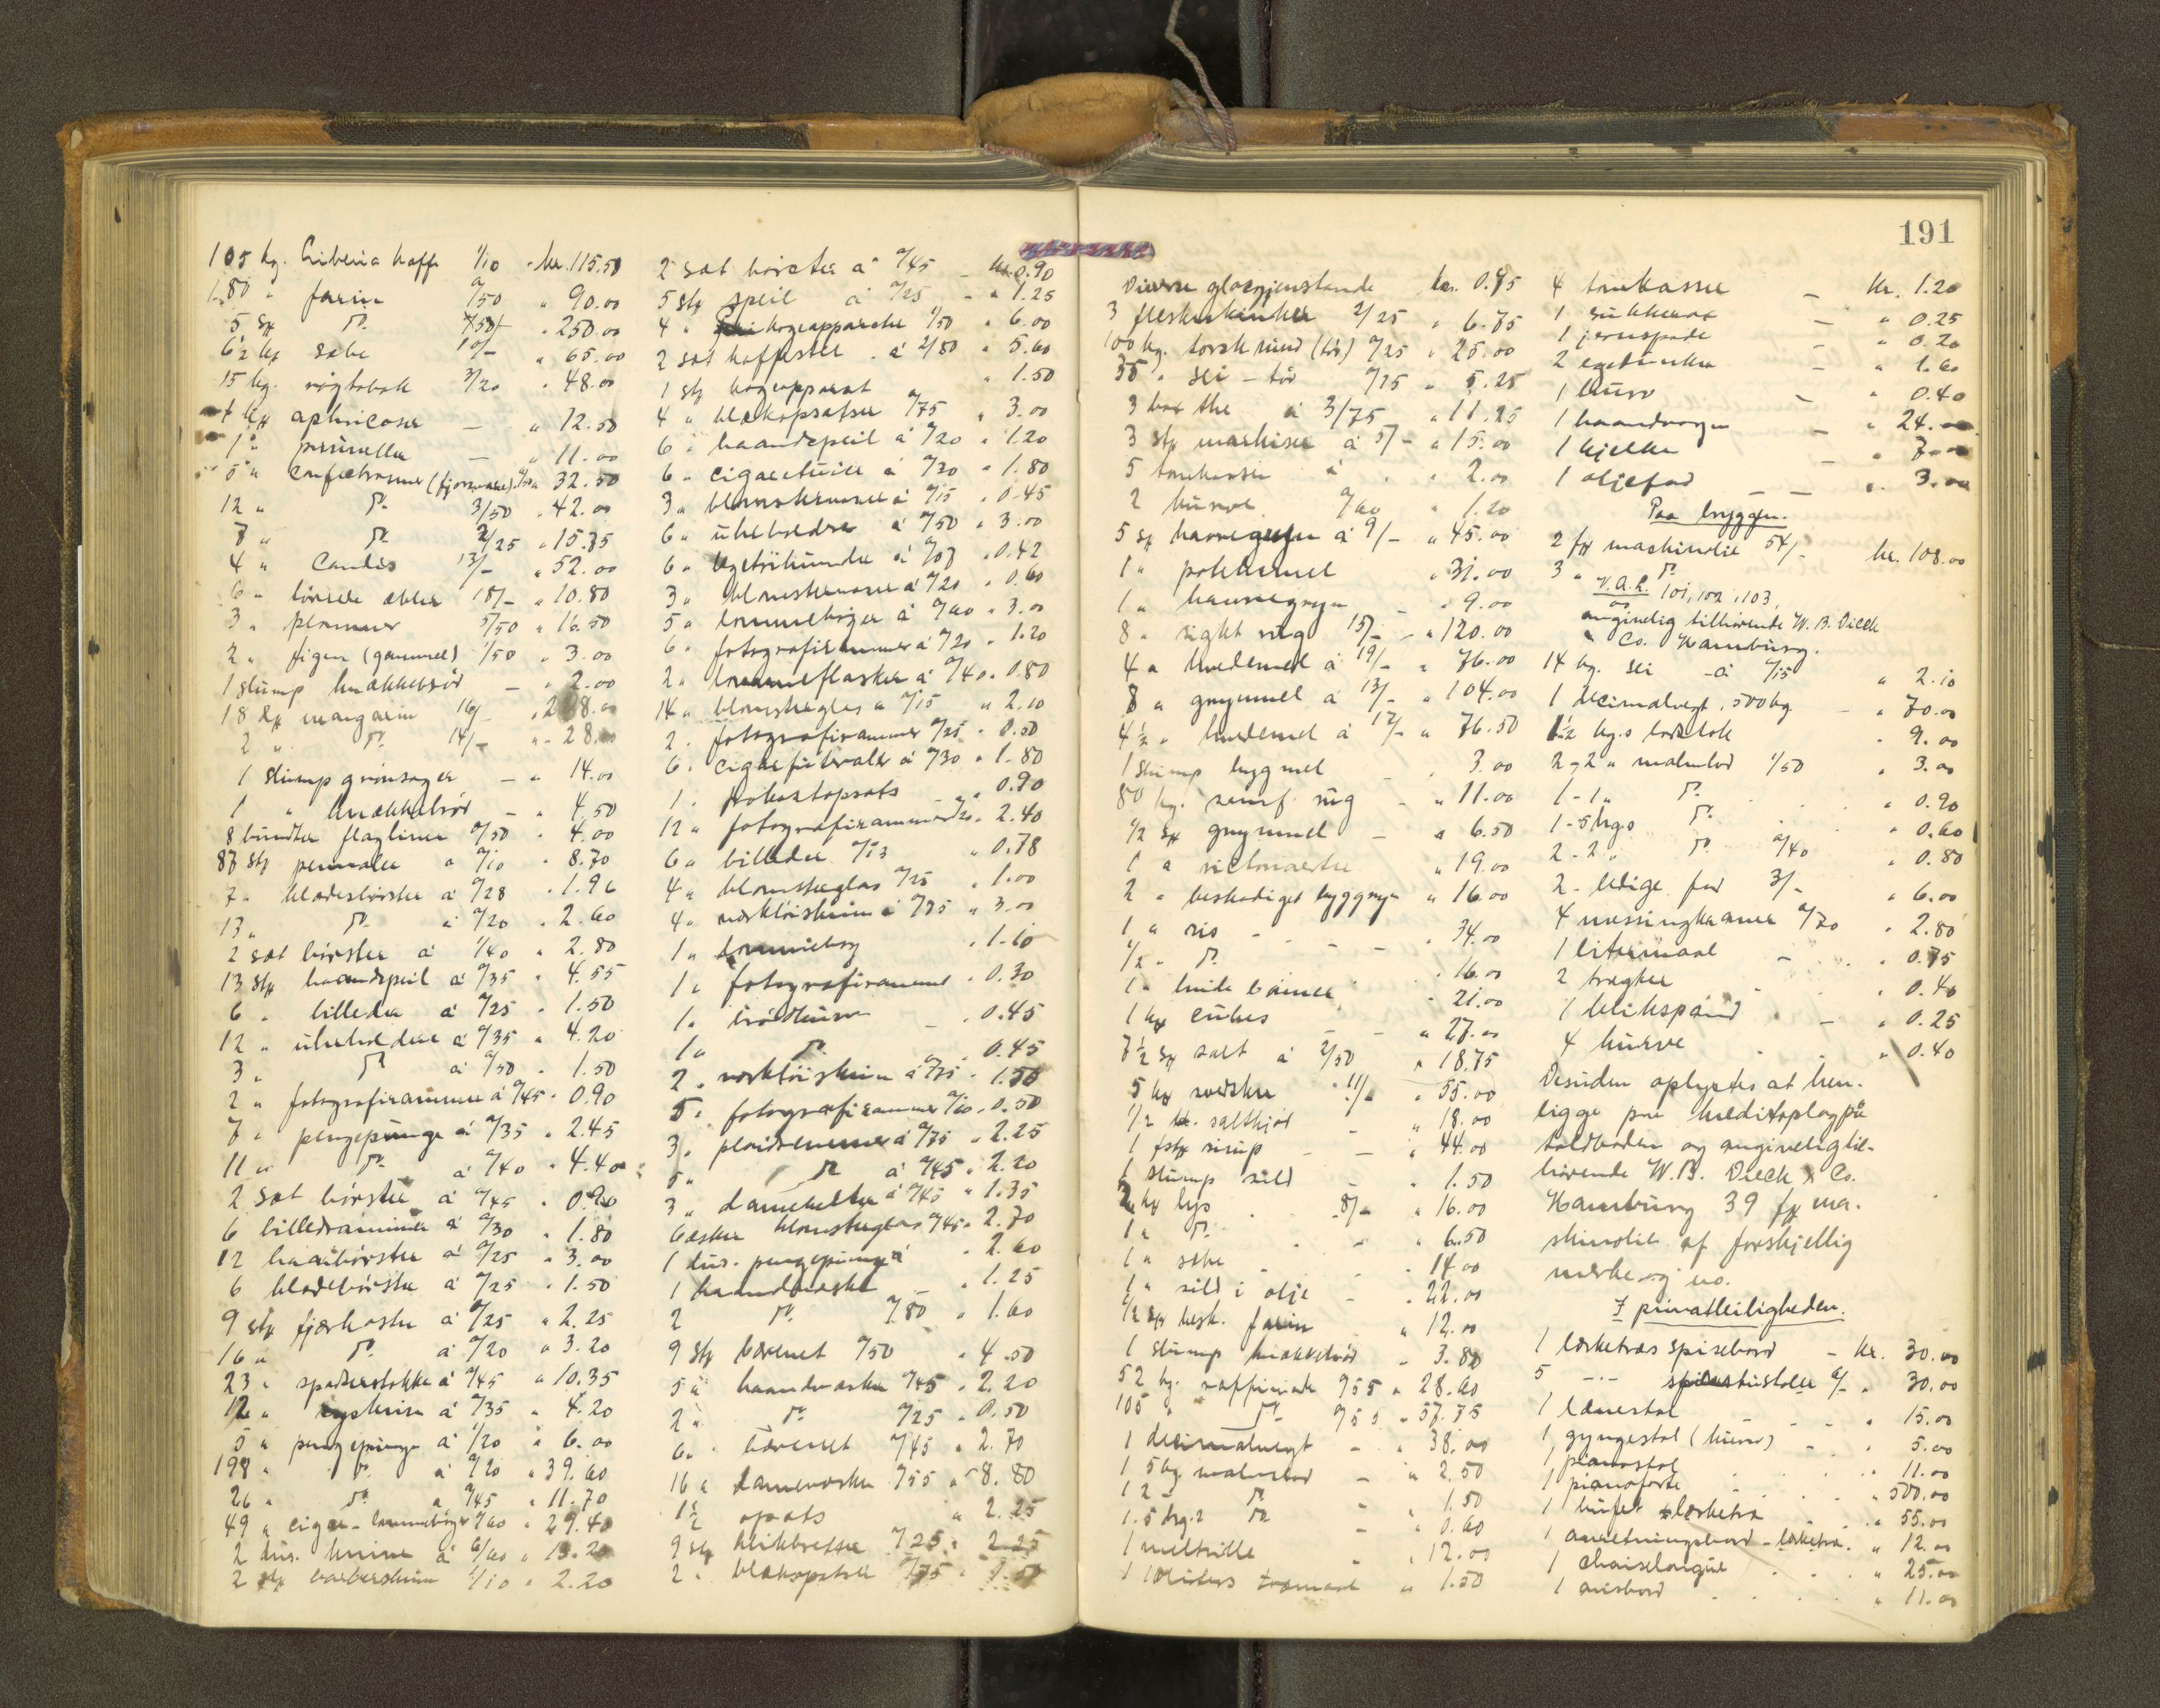 105 kg. Liberia kaffe 1/10 - kr. 115.50
180 " farin "/50 " 90.00
5 sk do 50/- " 250.00
6½ ks sæbe 10/- " 65.00
15 kg. røgtobak 3/20 " 48.00
1 ks aphricoser — " 12.50
1 " prunella — " 11.00
5 " (fjorsvare) 32.50
12 " do 3/50 " 42.00
7 " do 2/25 " 15.75
4 " Candis 13/- " 52.00
6 " tørrede æbler 18/- " 10.80
3 " plommer 5/50 " 16.50
2 " figen (gammel) 1/50 " 3.00
1 slump knækkebrød — " 2.00
18 dk margarin 16/- " 288.00
2 " do 14/- " 28.00
1 slump grønsager — " 14.00
1 " knækkebrød — " 4.50
8 bundter flagliner "/50 " 4.00
87 stk pennaler a "/10 " 8.70
7 " klædesbørster á "/28 " 1.96
13 " do á "/20 " 2.60
2 sæt børster á 1/40 " 2.80
13 stk haandspeil á "/35 " 4.55
6 " billeder á "/25 " 1.50
12 " uhrholdere á "/35 " 4.20
3 " do á "/50 " 1.50
2 " fotografirammer á "/45 " 0.90
7 " pengepunge á "/35 " 2.45
11 " do á "/40 " 4.40
2 sæt børster á "/45 " 0.90
6 billedrammer á "/30 " 1.80
12 haarbørster á "/25 " 3.00
6 klædebørster á "/25 " 1.50
9 stk fjærkoster á "/25 " 2.25
16 " do á "/20 " 3.20
23 " spadserstokke á "/45 " 10.35
12 " syskrin á "/35 " 4.20
5 " pengepunge á 1/20 " 6.00
198 " do á "/20 " 39.60
26 " do a "/45 " 11.70
49 " cigar- lommebøger "/60 " 29.40
2 dus. knive á 6/60 " 13.20
2 stk barberskrin 1/10 " 2.20
2 sæt børster á "/45 — kr. 0.90
5 stk speil á "/25 — " 1.25
4 " kogeapparater 1/50 " 6.00
2 sæt kaffestel á 2/80 " 5.60
1 stk kogeapparat " 1.50
4 " blækopsatser "/75 " 3.00
6 " haandspeil á "/20 " 1.20
6 " cigaretuier á "/30 " 1.80
3 " blomstervaser á "/15 " 0.45
6 " uhrholdere á "/50 " 3.00
6 " legetøihunder á "/07 " 0.42
3 " blomstervaser á "/20 " 0.60
5 " lommebøger á "/60 " 3.00
6 " fotografirammer á "/20 " 1.20
2 " lommeflasker á "/40 " 0.80
14 " blomsterglas a "/15 " 2.10
2 " fotografirammer "/25 " 0.50
6 " cigarfuteraler á "/30 " 1.80
1 " frokostopsats — " 0.90
12 " fotografirammer "/20 " 2.40
6 " billeder "/13 " 0.78
4 " blomsterglas "/25 " 1.00
4 " værktøiskrin á "/75 " 3.00
1 " lommebog " 1.10
1 " fotograframme " 0.30
1 " brødkurv — " 0.45
1 " do " 0.45
2 " værktøiskrin á "/75 " 1.50
5 " fotografirammer "/10 " 0.50
3 " plaidremmer á "/75 " 2.25
5 " do á "/45 " 2.20
3 " damebelter á "/45 " 1.35
6 æsker blomsterglas "/45 " 2.70
1 dus. pengepunge á " 2.60
1 haandvæske " 1.25
2 do "/80 " 1.60
9 stk bærenet "/50 " 4.50
5 " haandvæsker "/45 " 2.20
2 " do "/25 " 0.50
6 " bærenet "/45 " 2.70
16 " damevæsker "/55 " 8.80
1½ opsats " 2.25
9 stk blikbretter "/25 " 2.25
2 " blækopsatser "/75 " 1.50
191
Diverse glasgjenstande kr. 0.95
3 fleskeskinker 2/25 " 6.75
100 kg. torsk rund (tør) "/25 " 25.00
35 " sei - tør "/15 " 5.25
3 box the á 3/75 " 11.25
3 stk markiser á 5/- " 15.00
5 tomkasser á " 2.00
2 kurve "/60 " 1.20
5 sk havregryn á 9/- " 45.00
1 " potetmel " 31.00
1 " havregryn — " 9.00
8 " sigtet rug 15/- " 120.00
4 " hvedemel á 19/- " 76.00
8 " grynmel á 13/- " 104.00
4½ " hvedemel á 17/- " 76.50
1 slump bygmel — " 3.00
80 kg. rug — " 11.00
½ sk grynmel — " 6.50
1 " victoriaerter " 19.00
2 " beskadiget byggryn " 16.00
1 " ris - - — " 34.00
½ " do " 16.00
1 " hvide bønner " 21.00
1 ks cubes — " 27.00
7½ sk salt á 2/50 " 18.75
5 ks svedsker 11/- " 55.00
½ saltkjød — " 18.00
1 fstk sirup — " 44.00
1 slump sild — " 1.50
2 ks lys 8/- " 16.00
1 " do " 6.50
1 " sæbe " 14.00
1 " sild i olje — " 22.00
½ sk besk. farin " 12.00
1 slump knækkebrød " 3.80
52 kg. raffinade "/55 " 28.60
105 " do "/55 " 57.75
1 decimalvegt — " 38.00
1 5 kg. malmlod — " 2.50
1 2 - do " 1.50
1.5 hg.s do — " 0.60
1 meltrille " 12.00
1 10 liters træmaal " 1.50
4 tomkasser — kr. 1.20
1 sukkerøx — " 0.25
1 jernspade — " 0.20
2 — " 1.60
1 kurv — " 0.40
1 haandvogn — " 24.00
1 kjelke — " 7.00
1 oljefad — — " 3.00
Paa bryggen.
2 fk maskinolie 54/- kr. 108.00
3 " do
V.A.R. 101, 102, 103,
angivelig tilhørende W. B. Dieck
& Co. Hamburg.
14 kg. sei - á "/15 " 2.10
1 decimalvegt, 500 kg — " 70.00
" 9.00
2-2 " malmlod 1/50 " 3.00
1-1 " do " 0.90
1-5 hgs do " 0.60
2-2 " do "/40 " 0.80
2 - ledige fad 3/- " 6.00
4 messingkraner "/70 " 2.80
1 litermaal — " 0.75
2 tragter " 0.40
1 blikspand — " 0.25
4 kurve " 0.40
Desuden oplystes at hen-
ligge paa kreditoplag på
toldboden og angiveligtil-
hørende W. B. Dieck & Co.
Hamburg 39 fk ma-
skinolie af forskjellig
merke og no.
I privatleiligheden.
1 lærketræs spisebord — kr. 30.00
5 -"- spisestuestoler 6/- " 30.00
1 lænestol " 15.00
1 gyngestol (kurv) — " 5.00
1 pianostol " 11.00
1 pianoforte " 500.00
1 buffet lærketræ " 55.00
1 anretningsbord - lærketræ " 12.00
1 chaiselongue " 25.00
1 avisbord " 11.00